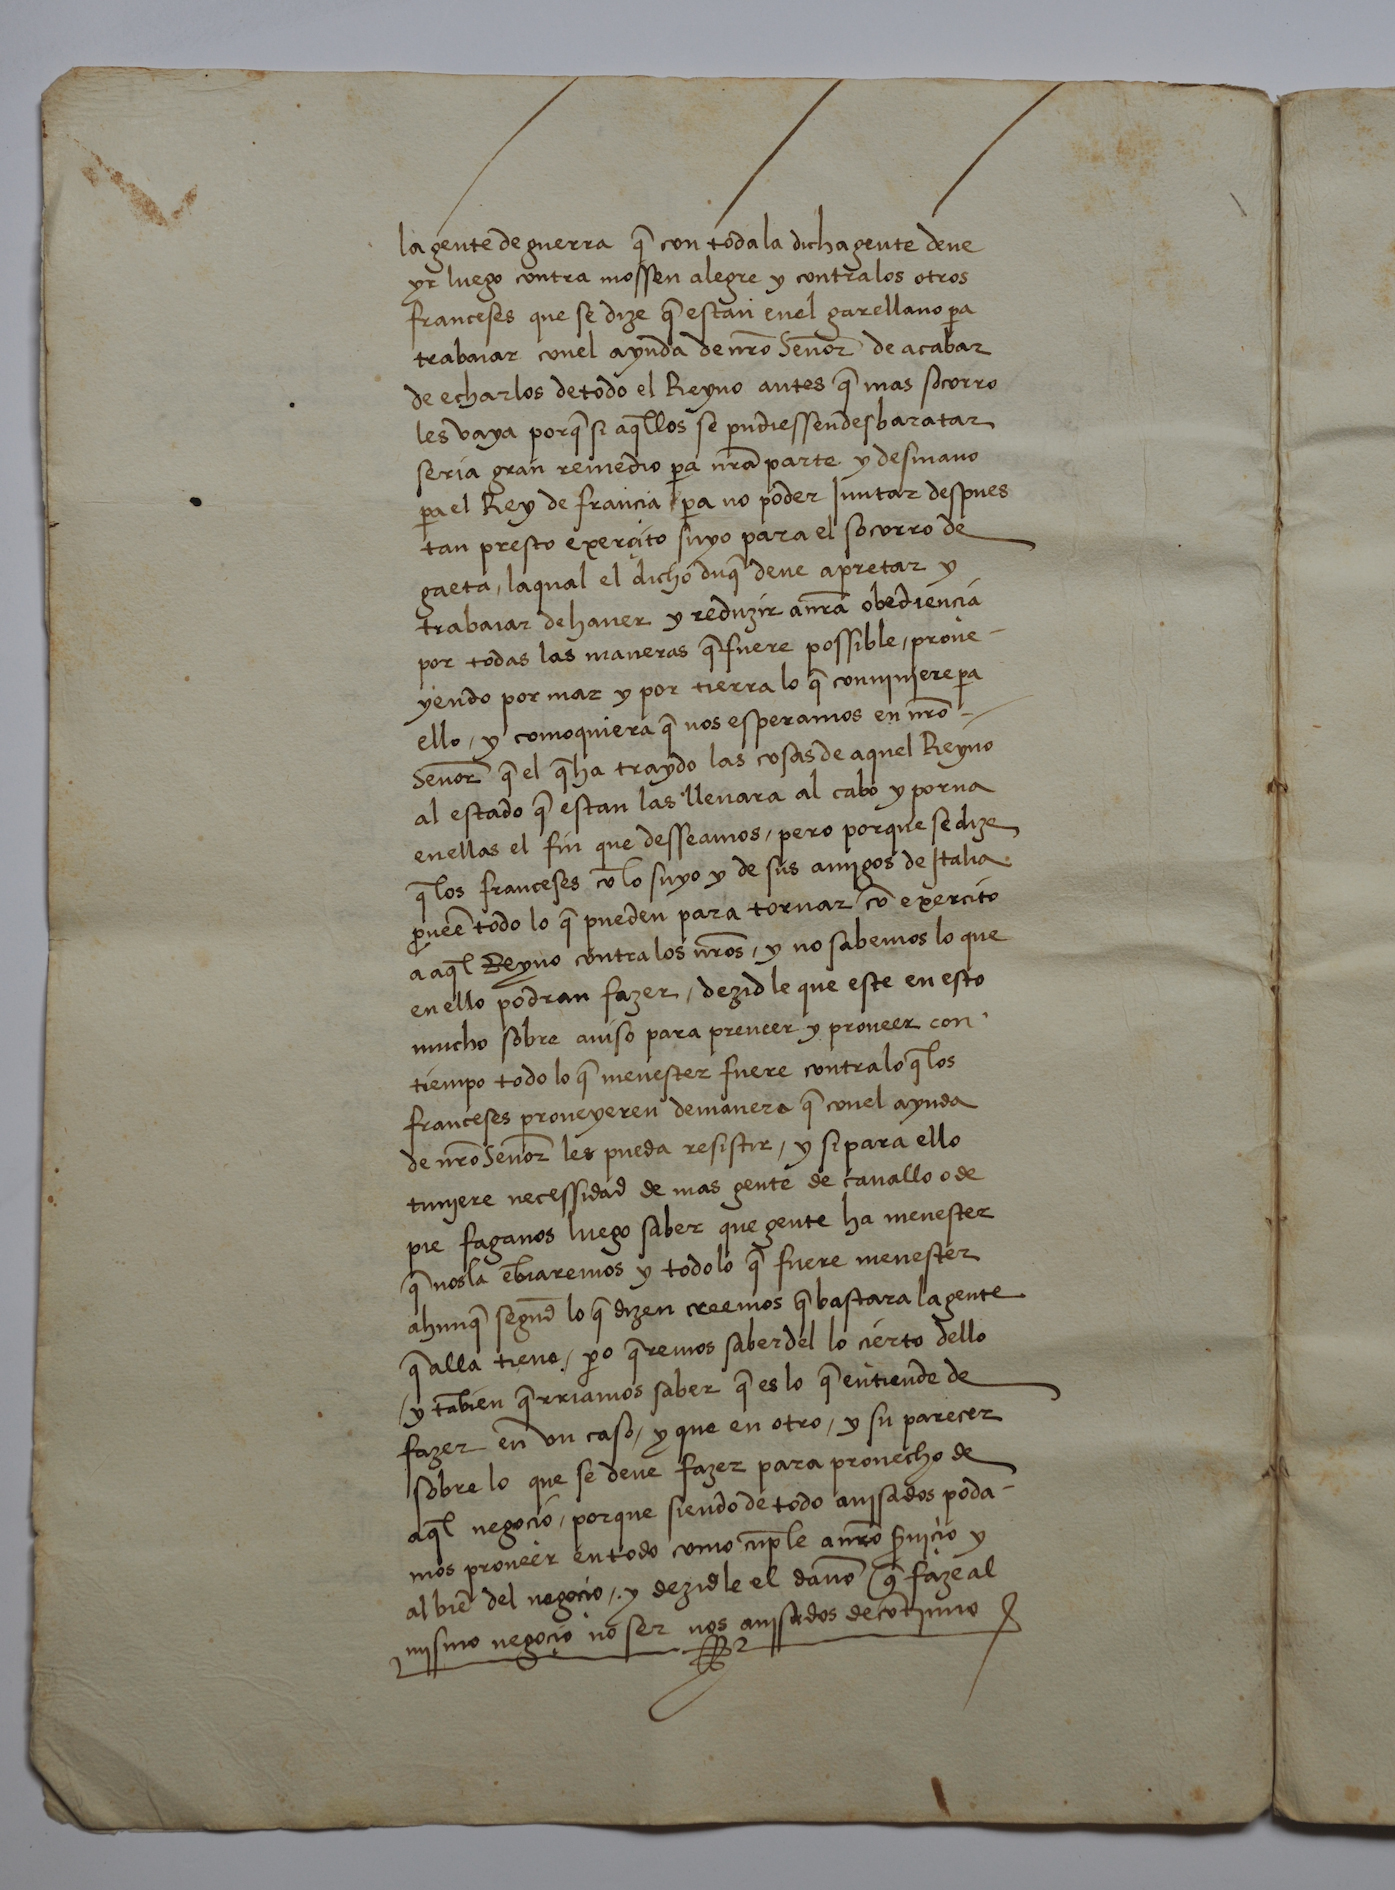 la gente de guerra q̃ con toda la dicha gente deue
yr luego contra mossen alegre y contra los otros
franceses que se dize q̃ estan enel garellano pa
trabaiar conel ayuda de nr̃o Señor de acabar
de echarlos de todo el Reyno antes q̃ mas socorro
les vaya porq̃ si aq̃llos se pudiessen desbaratar
seria gran remedio pa nr̃a parte y desmano
pa el Rey de francia / pa no poder Juntar despues
tan presto exerçito suyo para el socorro de
gaeta, laqual el dicho duq̃ deue apretar y
trabaiar de hauer y reduzir a nr̃a obediencia
por todas las maneras q̃ fuere possible, proue-
yendo por mar y por tierra lo q̃ conuiniere pa
ello, y comoquiera q̃ nos esperamos en nr̃o
Señor q̃ el q̃ ha traydo las cosas de aquel Reyno
al estado q̃ estan las lleuara al cabo y porna
enellas el fin que desseamos, pero porque se dize
q̃ los franceses cõ lo suyo y de sus amigos de Italia
prouẽẽ todo lo q̃ pueden para tornar cõ exercito
a aq̃l Reyno contra los nr̃os, y no sabemos lo que
enello podran fazer, dezidle que este en esto
mucho sobre auiso para preueer y proueer con
tiempo todo lo q̃ menester fuere contra lo q̃ los
franceses proueyeren demanera q̃ conel ayuda
de nr̃o Señor les pueda resistir, y si para ello
tuuiere necessidad de mas gente de cauallo o de
pie faganos luego saber que gente ha menester
q̃ nos la ẽbiaremos y todo lo q̃ fuere menester
ahunq̃ segũd lo q̃ dizen creemos q̃ bastara la gente
q̃ alla tiene, po q̃remos saber del lo cierto dello
/ y tãbien q̃rriamos saber q̃ es lo q̃ entiende de
fazer en vn caso, y que en otro, y su parecer
sobre lo que se deue fazer para prouecho de
aq̃l negocio, porque siendo de todo auisados poda-
mos proueer en todo como cũple a nr̃o seruicio y
al biẽ del negocio, y dezidle el daño q̃ faze al
mismo negoçio no ser nos auisados de cõtinuo